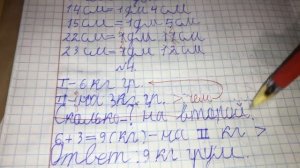 14см=1дм 4см
15см=1дм 5см
22см=1дм 12см
23см=1дм 12см
№1
I-6кг гр.
II-на 3кг гр. > чем
Сколько-? на второй.
6+3=9(кг)-на II кг >
Ответ: 9 кг груш.